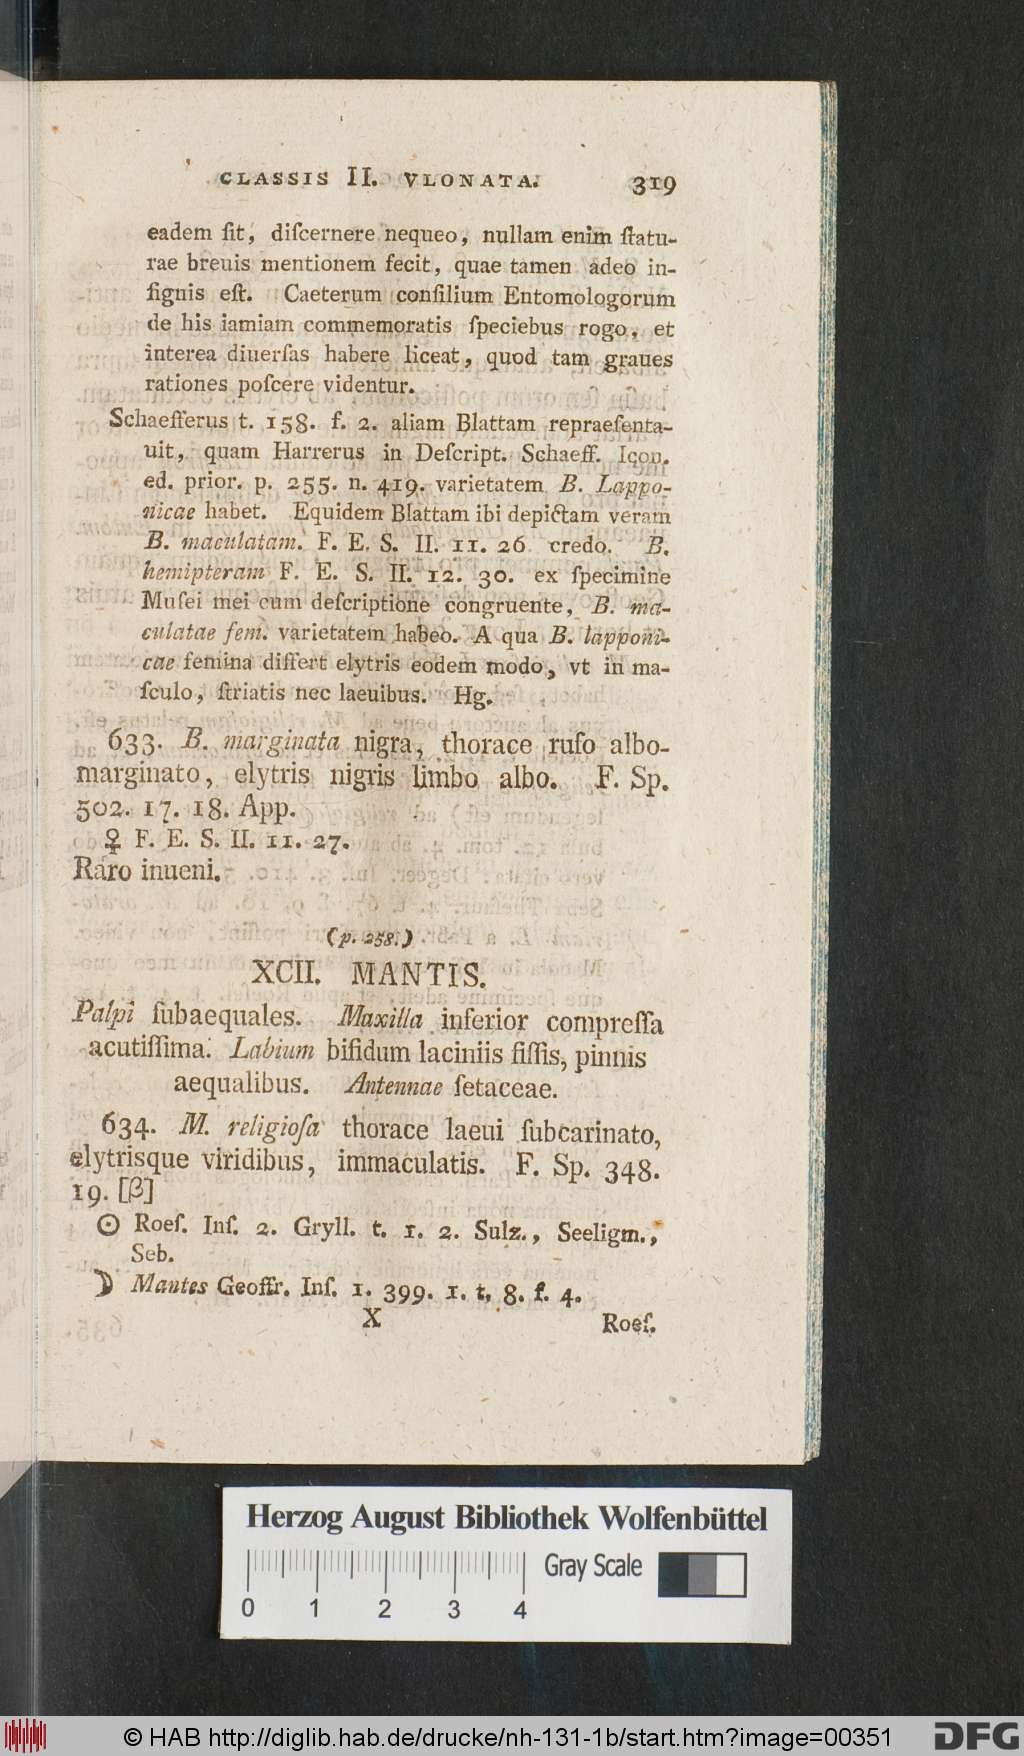 CLASSIS II. VLONATA. 319
eadem ſit, diſcernere nequeo, nullam enim ſtatu-
rae breuis mentionem fecit, quae tamen adeo in-
ſignis eſt. Caeterum conſilium Entomologorum
de his iamiam commemoratis ſpeciebus rogo, et
interea diuerſas habere liceat, quod tam graues
rationes poſcere videntur.
Schaefferus t. 158. f. 2. aliam Blattam repraeſenta-
uit, quam Harrerus in Deſcript. Schaeff. Icon.
ed. prior. p. 255. n. 419. varietatem B. Lappo-
nicae habet. Equidem Blattam ibi depictam veram
B. maculatam. F. E. S. II. 11. 26 credo. B.
hemipteram F. E. S. II. 12. 30. ex ſpecimine
Muſei mei cum deſcriptione congruente, B. ma-
culatae fem. varietatem habeo. A qua B. lapponi-
cae femina differt elytris eodem modo, vt in ma-
ſculo, ſtriatis nec laeuibus. Hg.
633. B. marginata nigra, thorace rufo albo-
marginato, elytris nigris limbo albo. F. Sp.
502. 17. 18. App.
♀ F. E. S. II. 11. 27.
Raro inueni.
(p. 258.)
XCII. MANTIS.
Palpi ſubaequales. Maxilla inferior compreſſa
acutiſſima. Labium bifidum laciniis fiſſis, pinnis
aequalibus. Antennae ſetaceae.
634. M. religioſa thorace laeui ſubcarinato,
elytrisque viridibus, immaculatis. F. Sp. 348.
19. [β]
☉ Roeſ. Inſ. 2. Gryll. t. 1. 2. Sulz., Seeligm.,
Seb.
☽ Mantes Geoffr. Inſ. 1. 399. 1. t. 8. f. 4.
X Roeſ.
Herzog August Bibliothek Wolfenbüttel
Gray Scale
0 1 2 3 4
© HAB http://diglib.hab.de/drucke/nh-131-1b/start.htm?image=00351 DFG